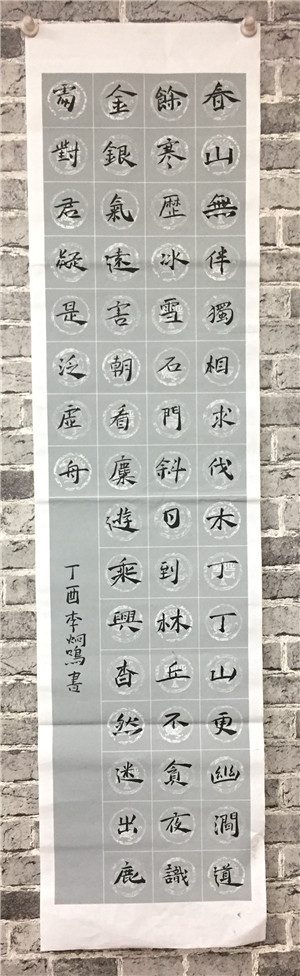 春山無伴獨相求伐木丁丁山更幽澗道
餘寒歴冰雪石門斜日到林丘不貪夜識
金銀氣遠害朝看麋遊乘興杳然迷出鹿
處對君疑是泛虛舟
丁酉李炯鳴書